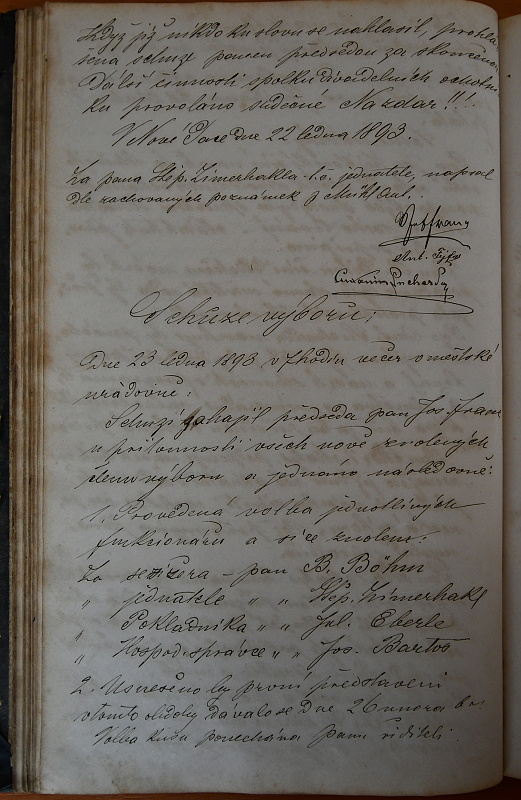 Když již nikdo ku slovu se nehlásil, prohlá
šena schůze panem předsedou za skončenou
Další činnosti spolku divadelních ochotní
ků provoláno srdečné Nazdar!!!
V Nové Pace dne 22 ledna 1893.
Za pana Štěp. Zimerhakla t.č. jednatele, napsal
dle zachovaných poznámek J Mühl Ant.
Jos Franz
Ant. Fejfar
Schůze výboru:
Dne 23 ledna 1893 v 7 hodin večer v městské
úřadovně:
Schůzi zahájil předseda pan Jos. Franz
u přítomnosti všech nově zvolených
členů výboru a jednáno následovně:
1. Provedena volba jednotlivých
funkcionářů a sice zvoleni:
Za režiséra – pan B. Böhm
„ jednatele „ „ Štěp. Zimerhakl
„ Pokladníka „ „ Jul. Eberle
„ Hospod. správce „ „ Jos. Bartoš
2. Usneseno by první představení
v tomto období dávalo se dne 26 února t.r.
Volba kusu ponechána panu řediteli